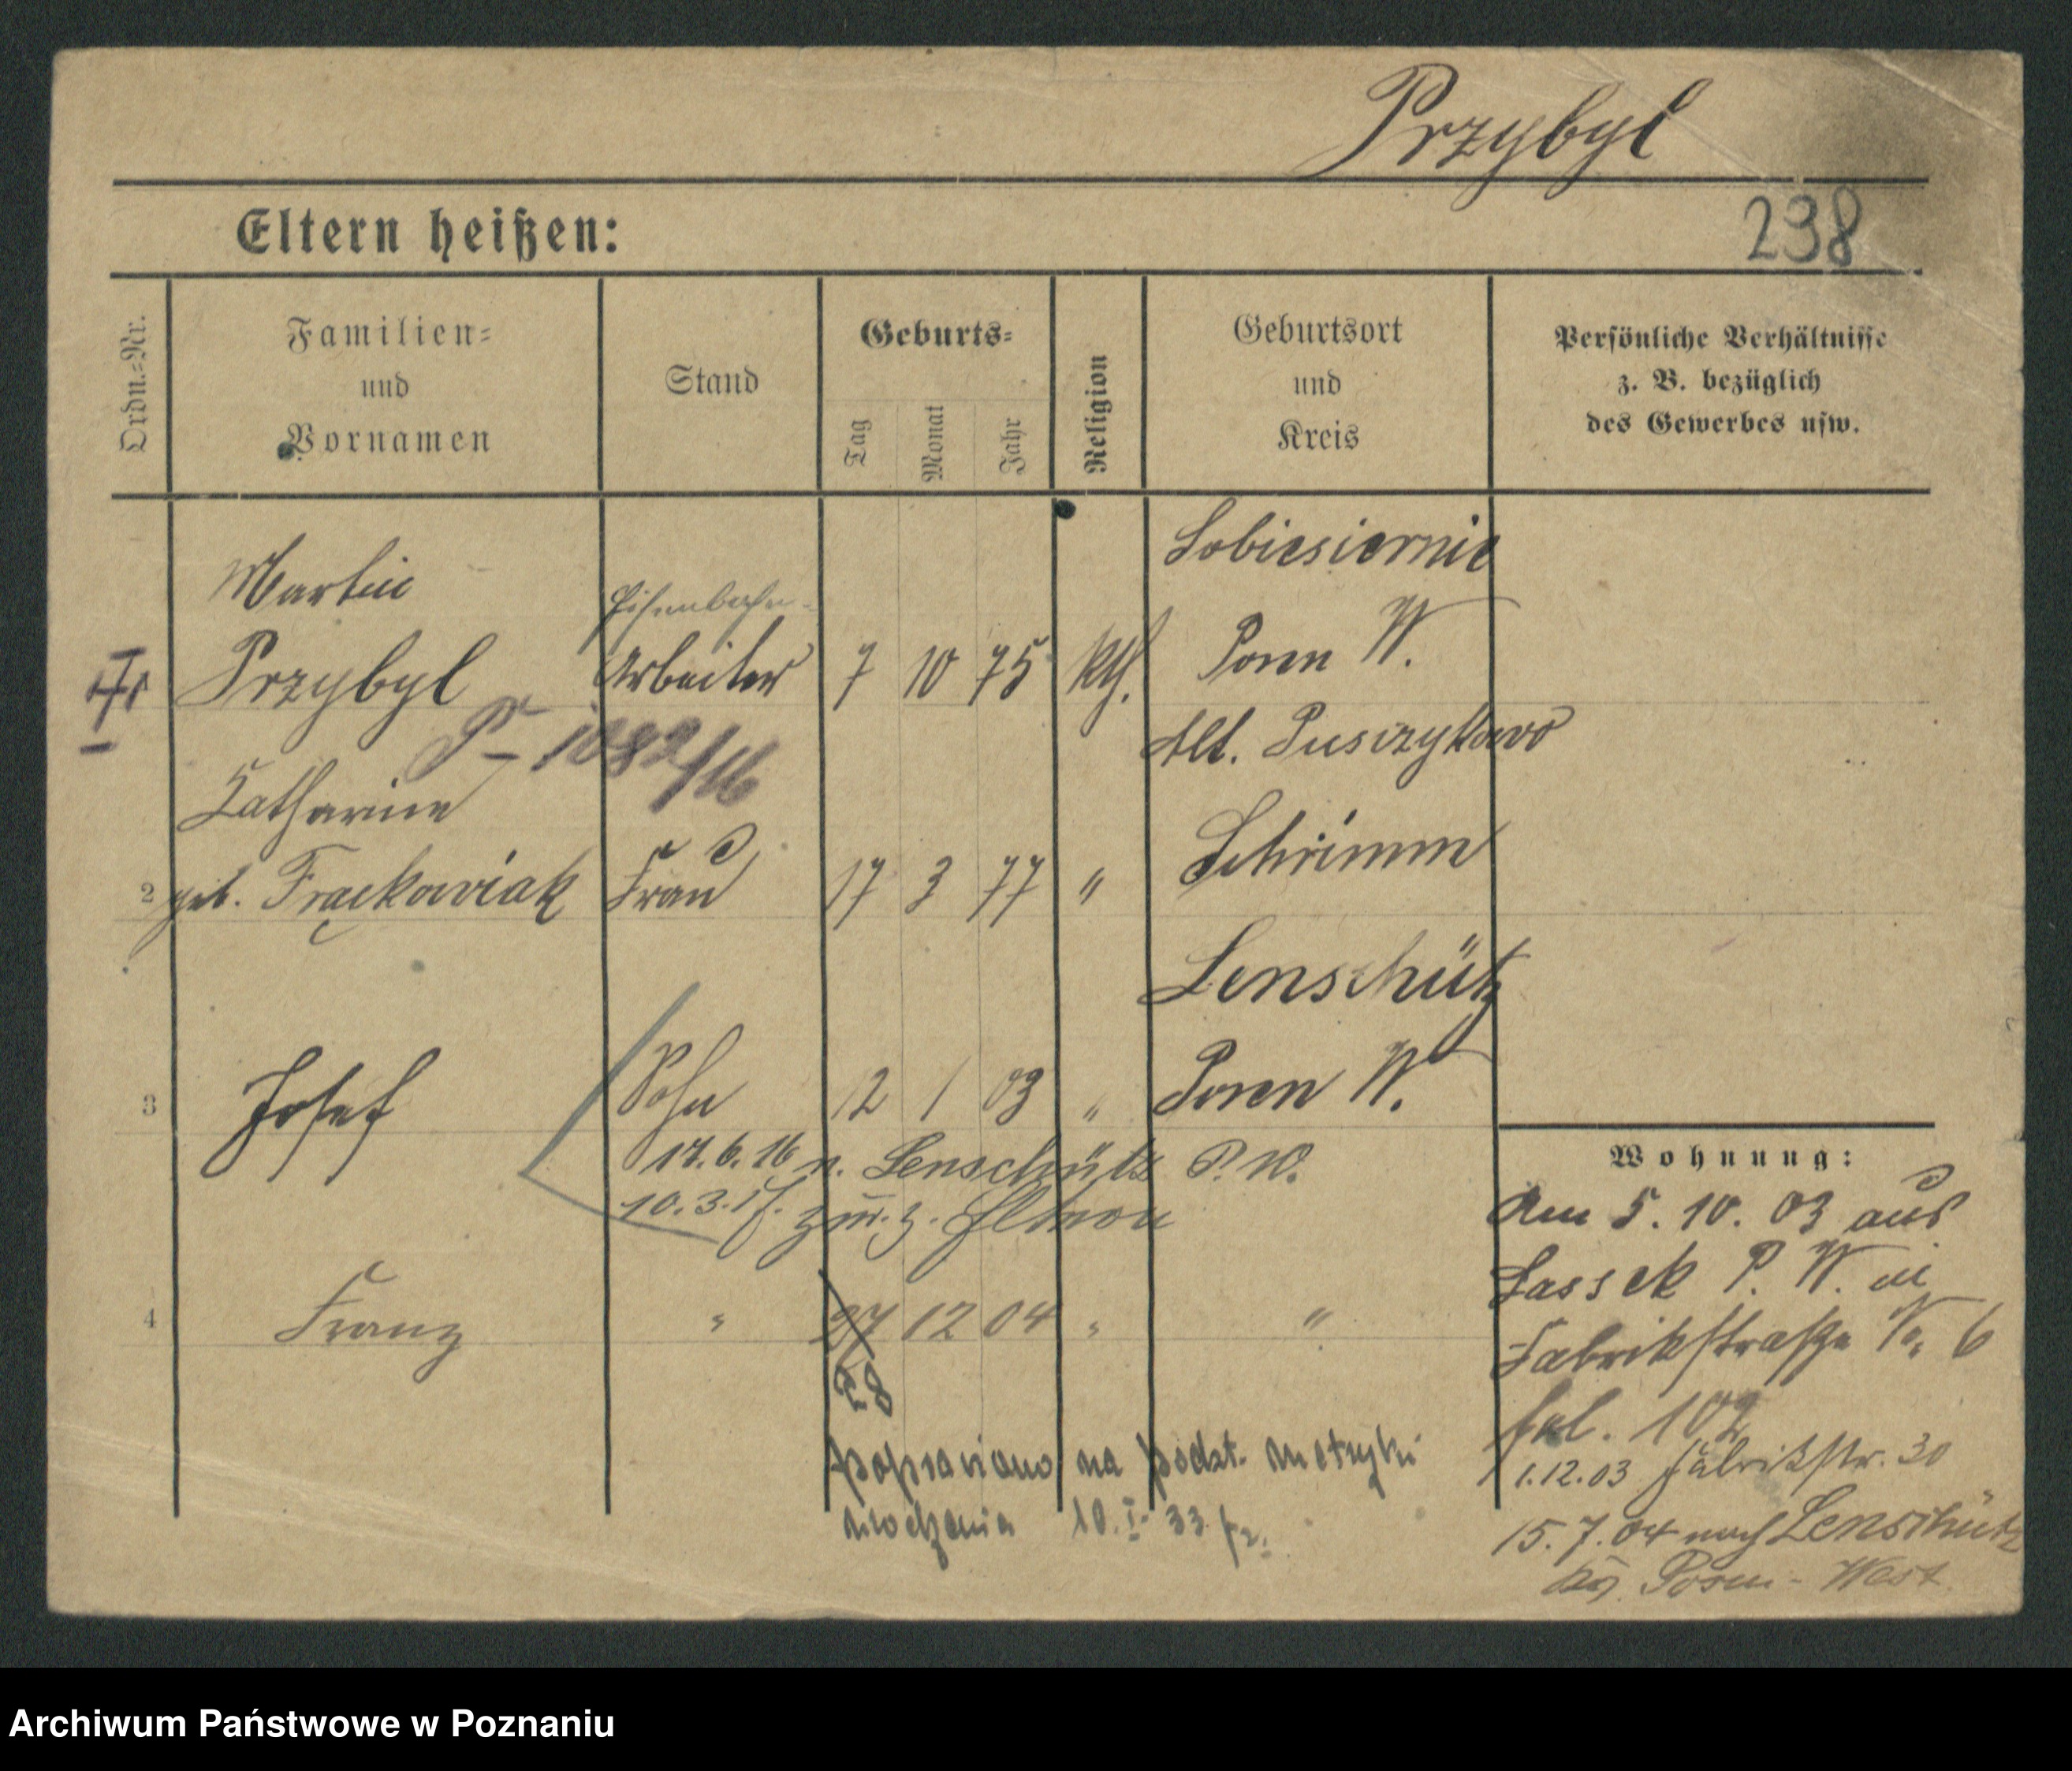 Przybyl
238
Eltern heißen:
Ordn.-Nr.
Familien-
und
Vornamen
Stand
Geburts-
Tag
Monat
Jahr
Religion
Geburtsort
und
Kreis
Persönliche Verhältnisse
z. B. bezüglich
des Gewerbes usw.
Martin
Przybyl
Eisenbahn-
Arbeiter
7 10 75 kth.
Sobiesiernie
Posen W.
P- 1082/16
Catharine
2 geb. Frąckowiak Frau 17 3 77 "
Alt. Pusczykowo
Schrimm
3 Josef Sohn 12 1 03 "
Lenschütz
Posen W.
17.6.16 n. Lenschütz P.W.
10.3.17. zur. z. Eltern
4 Franz " 27 12 04 " "
28
poprawiono na podst. metryki
urodzenia 10.I.33
Wohnung:
Am 5.10.03 aus
Lassek P. W. in
Fabrikstraße No. 6
fol. 102
1.12.03 Fabrikstr. 30
15.7.04 nach Lenschütz
Krs. Posen-West
Archiwum Państwowe w Poznaniu